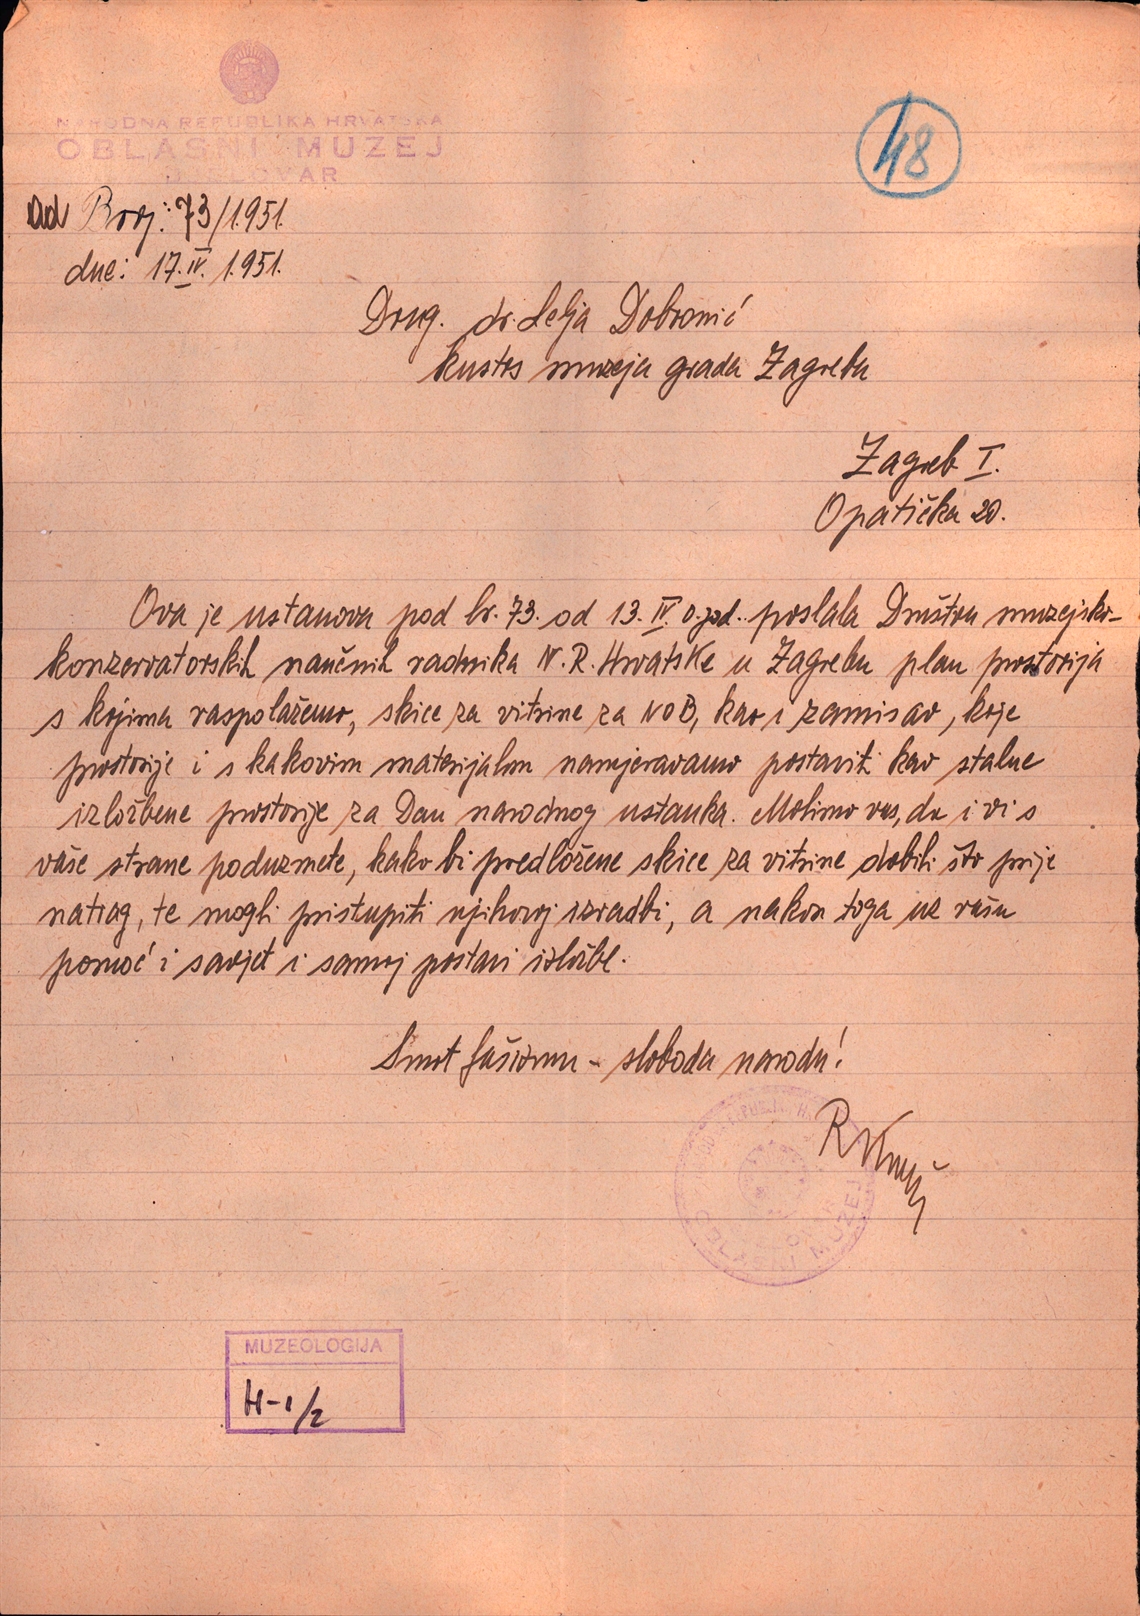 NARODNA REPUBLIKA HRVATSKA
OBLASNI MUZEJ
BJELOVAR
48
ad Broj: 73/1951.
dne: 17. IV. 1951.
Drug. dr. Lelja Dobronić
kustos muzeja grada Zagreba
Zagreb I.
Opatička 20.
Ova je ustanova pod br. 73. od 13. IV. o. god. poslala Društvu muzejsko-
konzervatorskih naučnih radnika N. R. Hrvatske u Zagrebu plan prostorija
s kojima raspolažemo, skice za vitrine za NOB, kao i zamisao, koje
prostorije i s kakovim materijalom namjeravamo postaviti kao stalne
izložbene prostorije za Dan narodnog ustanka. Molimo vas, da i vi s
vaše strane poduzmete, kako bi predložene skice za vitrine dobili što prije
natrag, te mogli pristupiti njihovoj izradbi, a nakon toga uz vašu
pomoć i savjet i samoj postavi izložbe.
Smrt fašizmu - sloboda narodu!
OBLASNI MUZEJ
MUZEOLOGIJA
H-1/2